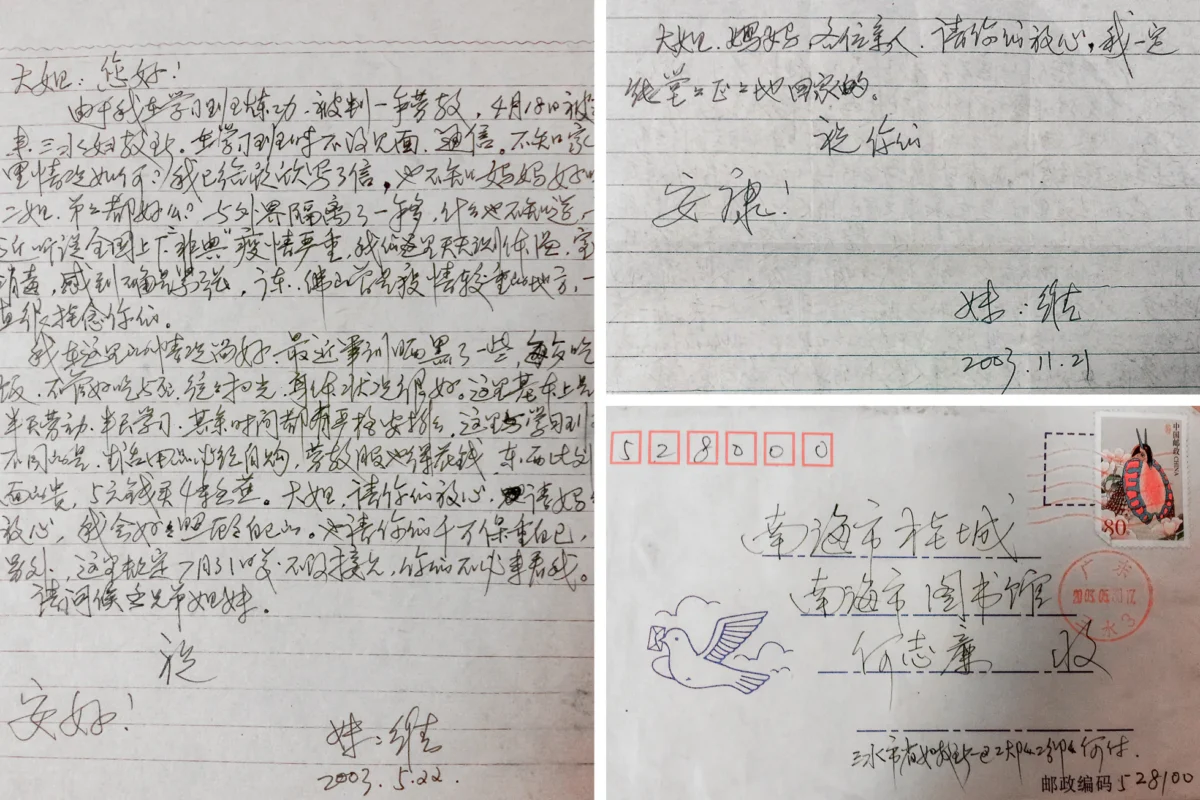 大姐：您好！
由于我在学习班里炼功，被判一年劳教，4月18日被
车三水妇教所。在学习班时不设见面、通信。不知家
里情况如何？我已给欣欣写了信，也不知妈妈好
二姐、弟弟都好么？与外界隔离了一年多，什么也不知道，
近听说全国上下"非典"疫情严重，我们这里天天测体温，室
消毒，感到确是紧张，广东、佛山曾是疫情较重的地方，一
直很挂念你们。
我在这里的情况尚好，最近军训晒黑了一些，每台吃
饭，不管好吃与否，统统扫光，身体状况很好。这里基本上是
半天劳动，半天学习，其余时间都有严格安排，这里与学习班
不同的是，生活用品必经自购，劳教服也得花钱，东西比外
面的贵，5元钱买4
大姐，请你们放心，请妈妈
放心，我会好好照顾自己的。也请你们千万保重自己，
另外，这里规定7月31日前不设接见，你们不必来看我。
请问候各兄弟姐妹。
祝
安好！
妹：维
2003.5.22.
大姐、妈妈、各位亲人，请你们放心，我一定
能堂堂正正地回家的。
祝你们
安康！
妹：维
2003.11.21
528000
中国邮政
80
南海市桂城
南海市图书馆
何志廉 收
广东
三水市
邮政编码 528100